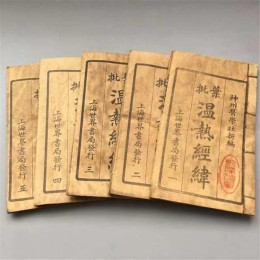 神州醫學社新編
葉批
溫熱經緯
上海世界書局發行 一
批
溫熱經
上海世界書局發行 二
批
溫熱
上海世界書局發行 三
批
上海世界書局發行 四
批
上海世界書局發行 五